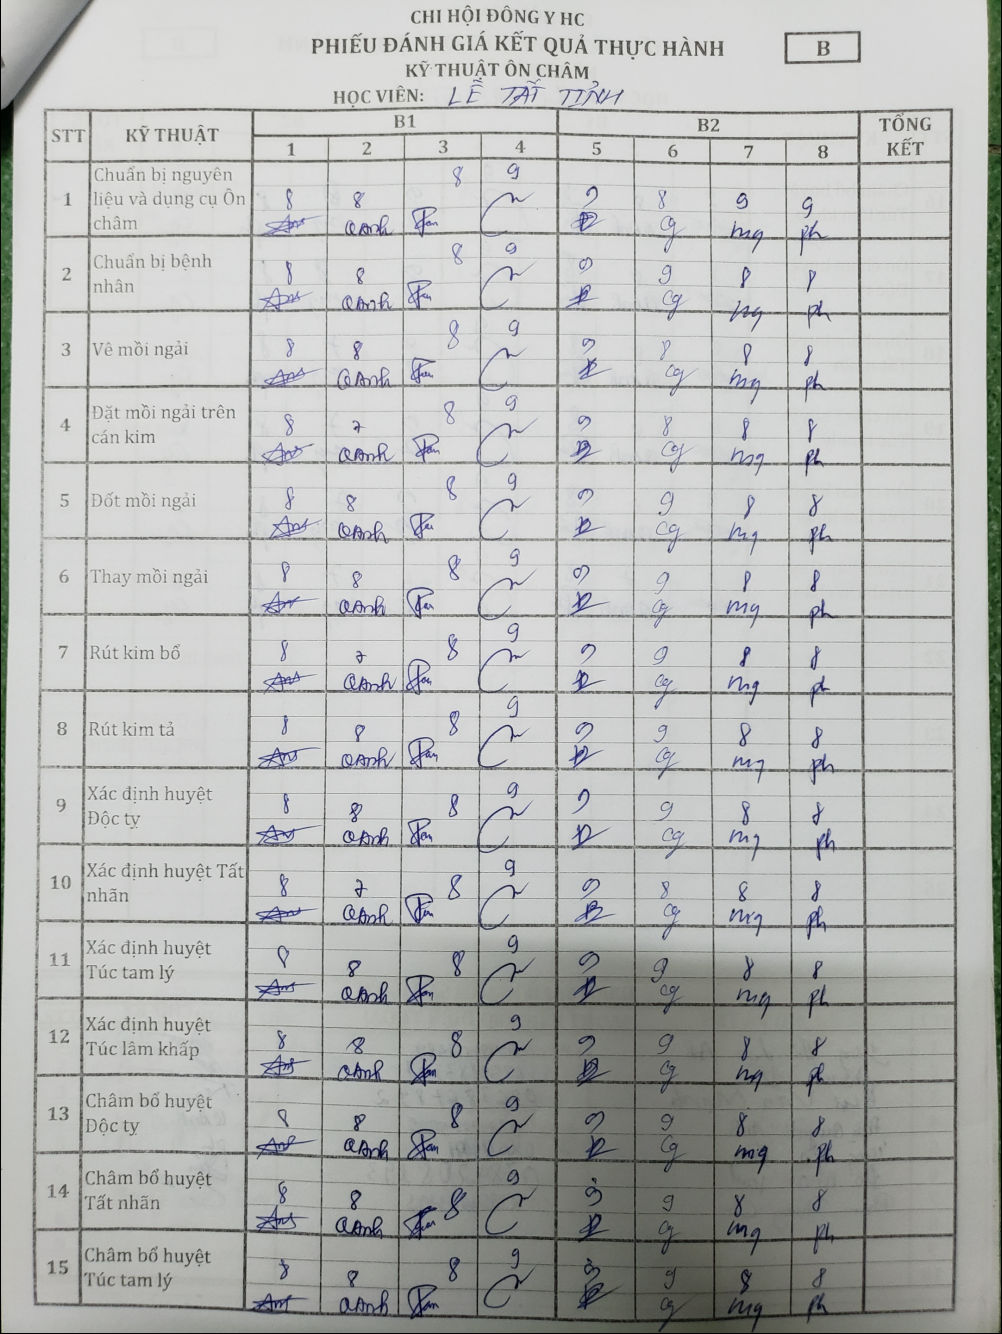 CHI HỘI ĐÔNG Y HC
PHIẾU ĐÁNH GIÁ KẾT QUẢ THỰC HÀNH
B
KỸ THUẬT ÔN CHÂM
HỌC VIÊN: LÊ TẤT TỈNH
STT KỸ THUẬT B1 B2 TỔNG KẾT
1 2 3 4 5 6 7 8
1 Chuẩn bị nguyên liệu và dụng cụ Ôn châm 8 8 8 9 9 8 9 9
QAnh cg mg ph
2 Chuẩn bị bệnh nhân 8 8 8 9 9 9 8 8
QAnh cg mg ph
3 Vê mồi ngải 8 8 8 9 9 8 8 8
QAnh cg mg ph
4 Đặt mồi ngải trên cán kim 8 7 8 9 9 8 8 8
QAnh cg mg ph
5 Đốt mồi ngải 8 8 8 9 9 9 8 8
QAnh cg mg ph
6 Thay mồi ngải 8 8 8 9 9 9 8 8
QAnh cg mg ph
7 Rút kim bổ 8 7 8 9 9 9 8 8
QAnh cg mg ph
8 Rút kim tả 8 8 8 9 9 9 8 8
QAnh cg mg ph
9 Xác định huyệt Độc tỵ 8 8 8 9 9 9 8 8
QAnh cg mg ph
10 Xác định huyệt Tất nhãn 8 7 8 9 9 8 8 8
QAnh cg mg ph
11 Xác định huyệt Túc tam lý 8 8 8 9 9 9 8 8
QAnh cg mg ph
12 Xác định huyệt Túc lâm khấp 8 8 8 9 9 9 8 8
QAnh cg mg ph
13 Châm bổ huyệt Độc tỵ 8 8 8 9 9 9 8 8
QAnh cg mg ph
14 Châm bổ huyệt Tất nhãn 8 8 8 9 9 9 8 8
QAnh cg mg ph
15 Châm bổ huyệt Túc tam lý 8 8 8 9 9 9 8 8
QAnh cg mg ph